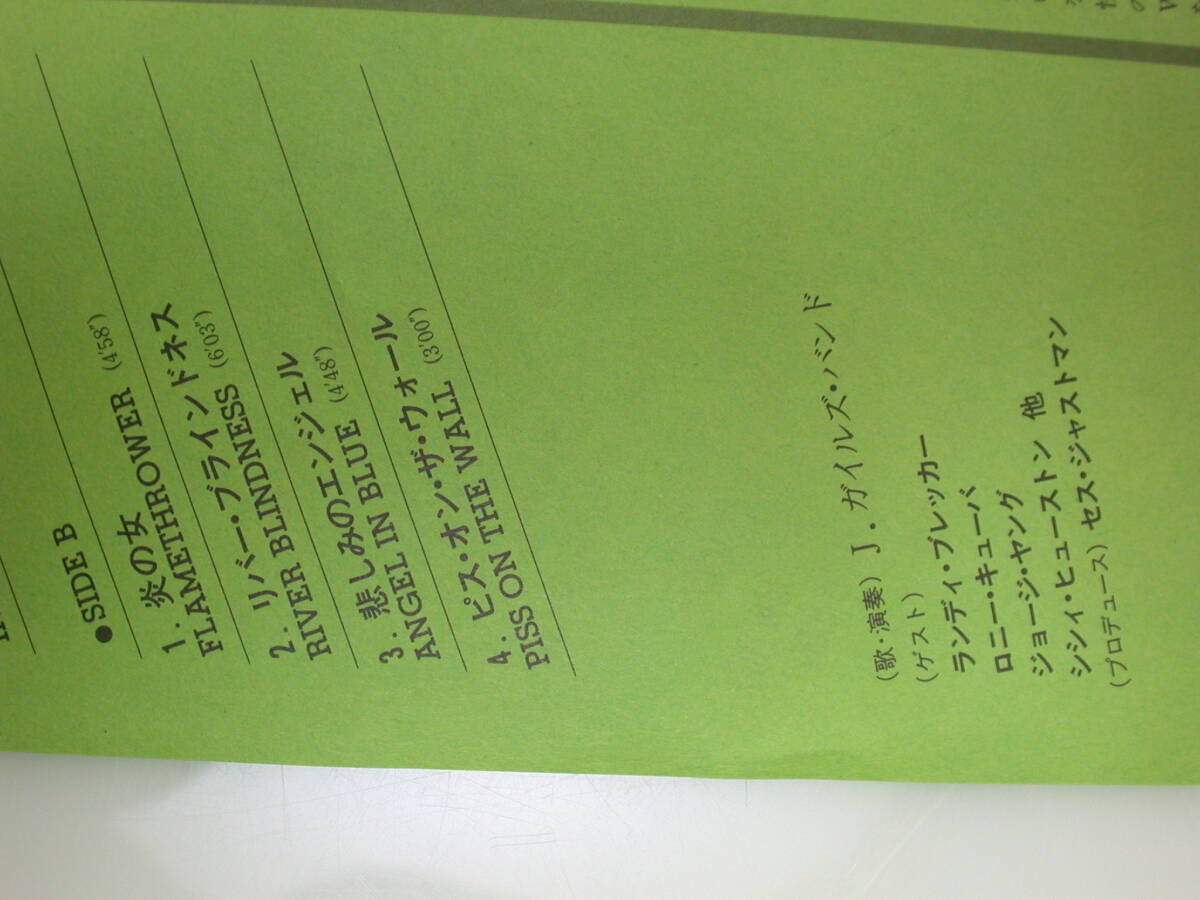 ●SIDE B
1. 炎の女
FLAMETHROWER (4′58″)
2. リバー・ブラインドネス
RIVER BLINDNESS (6′03″)
3. 悲しみのエンジェル
ANGEL IN BLUE (4′48″)
4. ピス・オン・ザ・ウォール
PISS ON THE WALL (3′00″)
(歌・演奏) J. ガイルズ・バンド
(ゲスト)
ランディ・ブレッカー
ロニー・キューバ
ジョージ・ヤング
シシィ・ヒューストン 他
(プロデュース) セス・ジャストマン